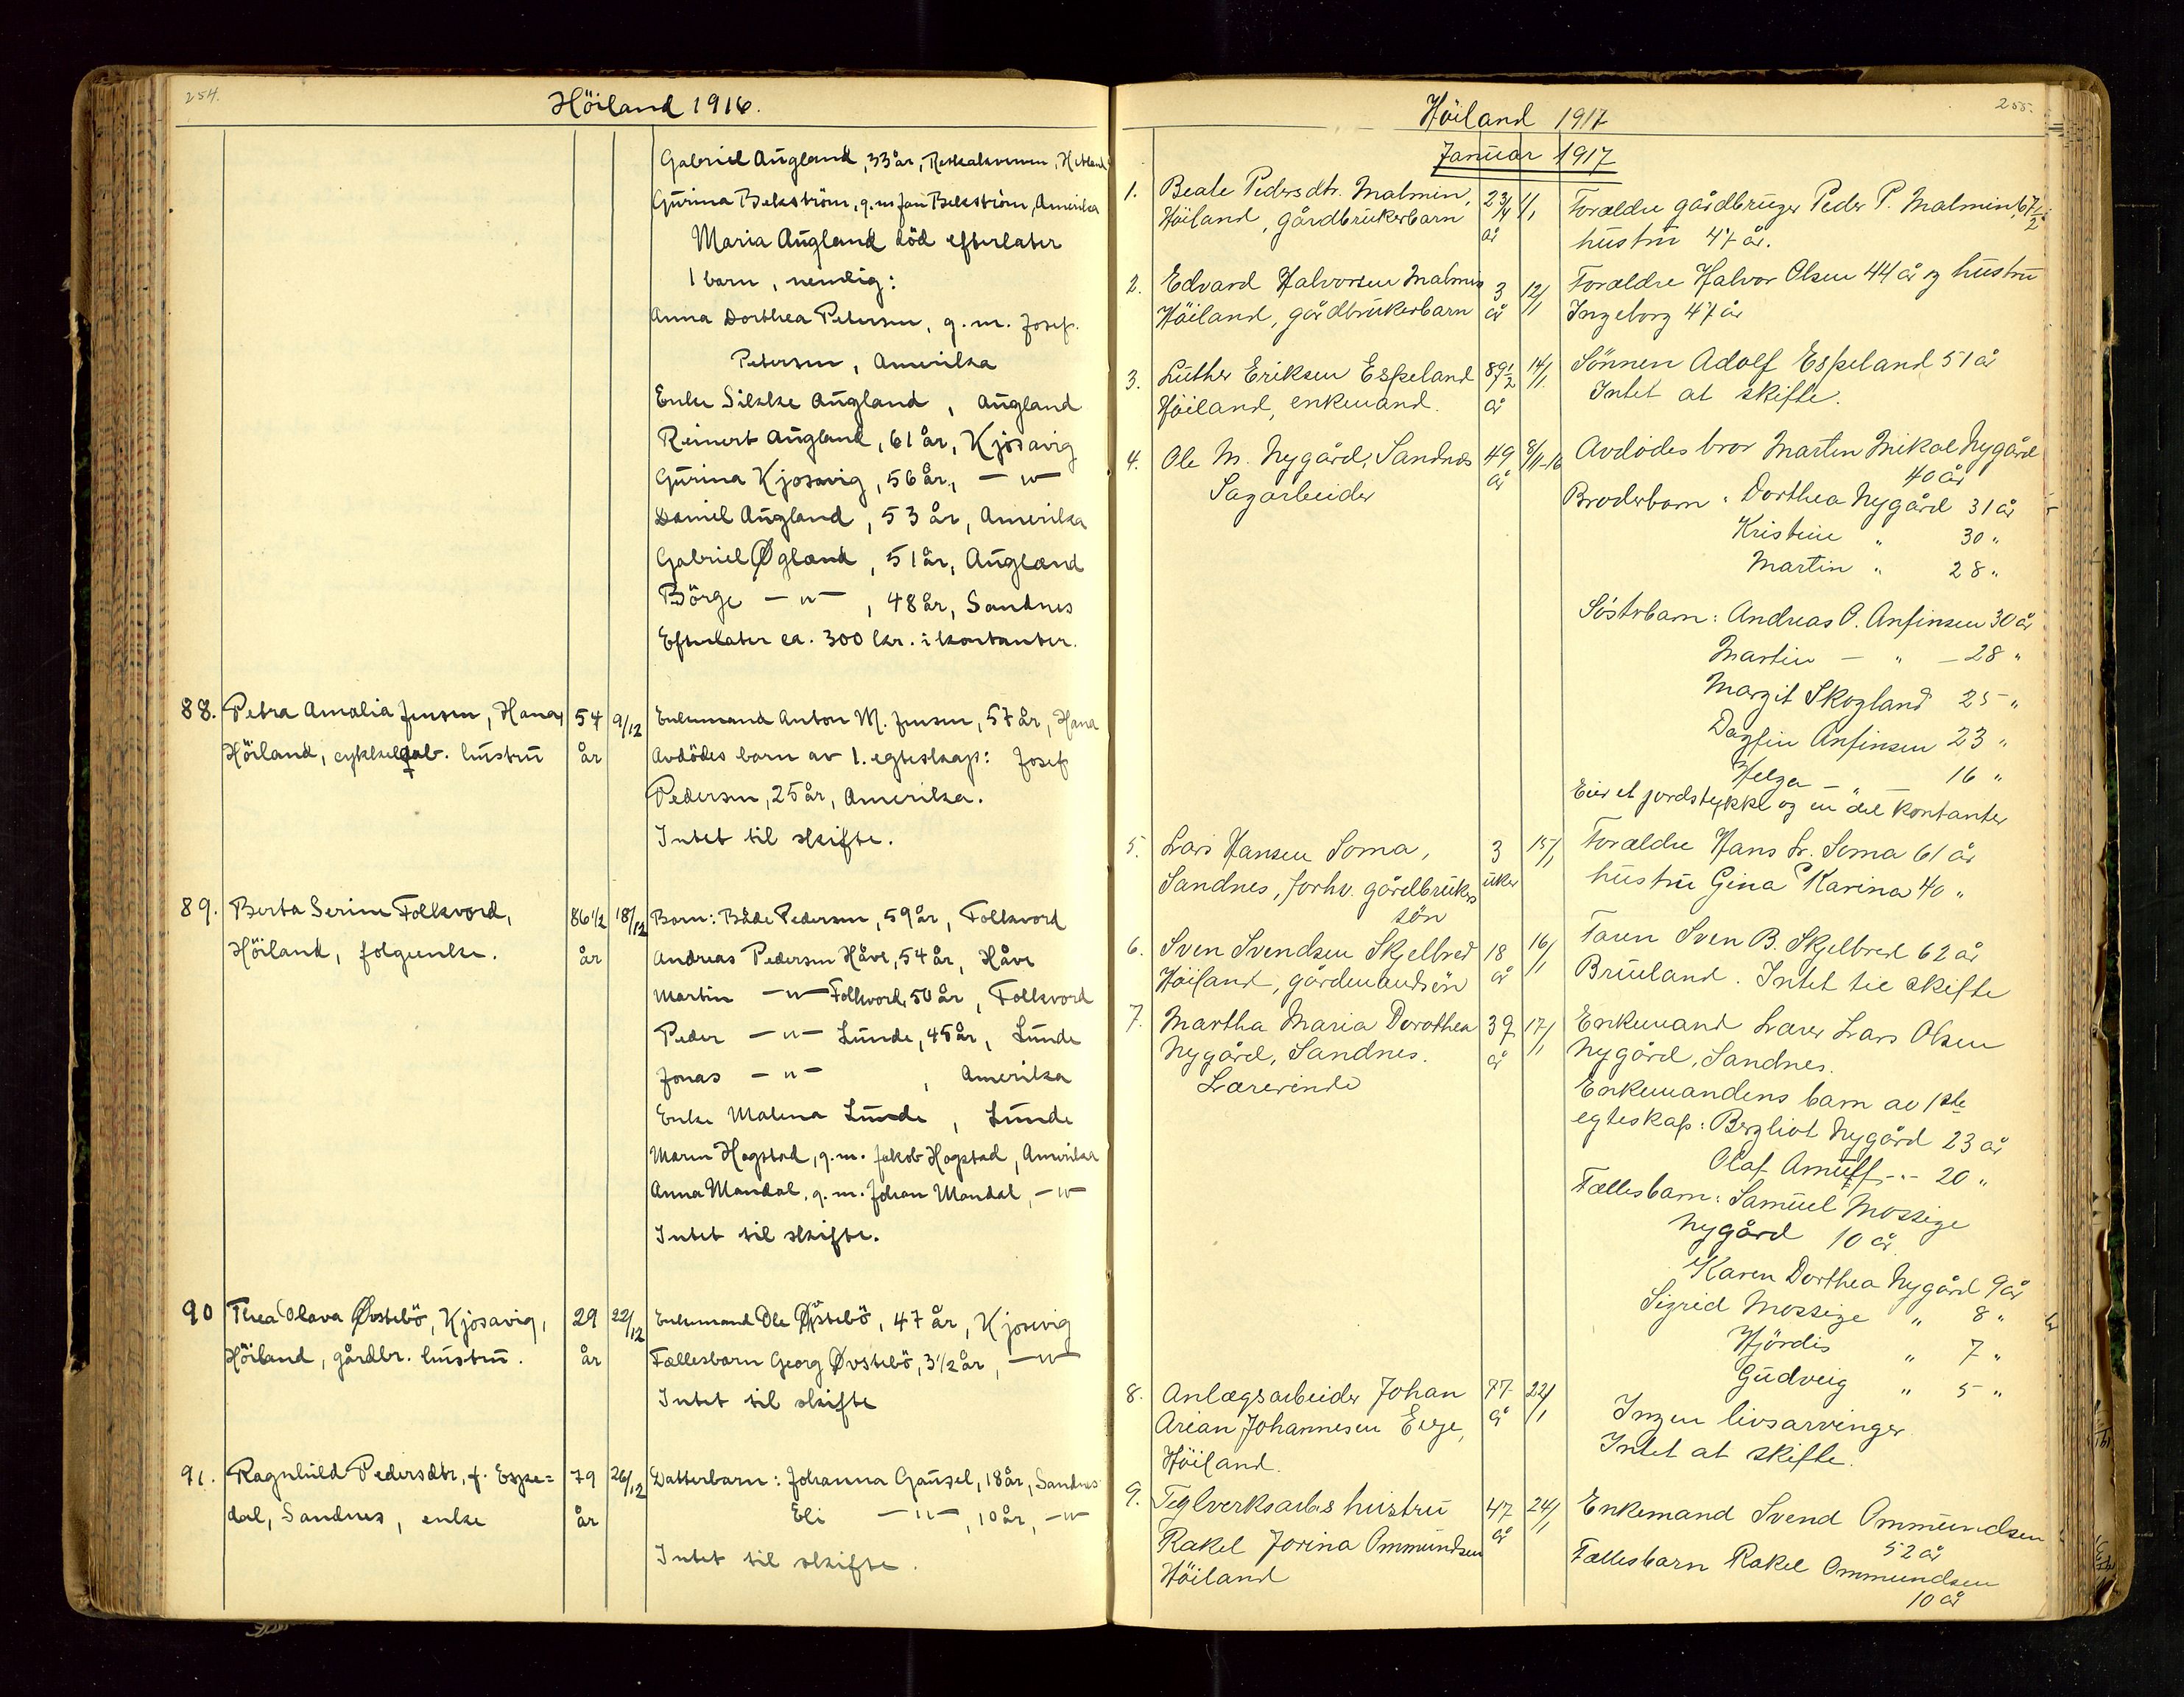 254.
Höiland 1916.
Gabriel Augland, 33 år, Hetland
Gurina Bekström, g.m. Jan Bekström, Amerika
Maria Augland död efterlater
1 barn, nemlig:
Anna Dorthea Petersen, g.m. Josef
Petersen, Amerika
Enke Silkke Augland, Augland
Reinert Augland, 61 år, Kjosavig
Gurina Kjosavig, 56 år, — " —
Daniel Augland, 53 år, Amerika
Gabriel Øgland, 51 år, Augland
Börge — " —, 48 år, Sandnes
Efterlater ca. 300 kr. i kontanter.
88. Petra Amalia Jensen, Hana, 54 9/12 Enkemand Anton M. Jensen, 57 år, Hana
Höiland, cykkelfab. hustru år Avdödes barn av 1. egteskap: Josef
Pedersen, 25 år, Amerika.
Intet til skifte.
89. Berta Serine Folkvord, 86 1/2 18/12 Barn: Både Pedersen, 59 år, Folkvord
Höiland, folgeenke. år Andreas Pedersen Håve, 54 år, Håve
Martin — " — Folkvord, 50 år, Folkvord
Peder — " — Lunde, 45 år, Lunde
Jonas — " — , Amerika
Enke Malena Lunde, Lunde
Maren Hogstad, g.m. Jakob Hogstad, Amerika
Anna Mandal, g.m. Johan Mandal, — " —
Intet til skifte.
90 Thea Olava Øvstebö, Kjosavig, 29 22/12 Enkemand Ole Øvstebö, 47 år, Kjosvig
Höiland, gårdbr. hustru. år Fællesbarn Georg Øvstebö, 3 1/2 år, — " —
Intet til skifte
91. Ragnhild Pedersdtr, f. Espe= 79 26/12 Datterbarn: Johanna Gausel, 18 år, Sandnes
dal, Sandnes, enke år Eli — " —, 10 år, — " —
Intet til skifte.
255.
Höiland 1917
Januar 1917
1. Beate Pedersdtr. Malmin, 2 3/4 1/1 Forældre gårdbruger Peder P. Malmin, 67 1/2
Höiland, gårdbrukerbarn år hustru 47 år.
2. Edvard Halvorsen Malmin 3 12/1 Forældre Halvor Olsen 44 år og hustru
Höiland, gårdbrukerbarn år Ingeborg 47 år
3. Luther Eriksen Espeland 89 1/2 14/1 Sönnen Adolf Espeland 51 år
Höiland, enkemand. år Intet at skifte.
4. Ole M. Nygård, Sandnes 49 8/11-16 Avdödes bror Martin Mikal Nygård
Sagarbeider år 40 år
Broderbarn: Dorthea Nygård 31 år
Kristine " 30 "
Martin " 28 "
Söstrbarn: Andreas O. Anfinsen 30 år
Martin — " — 28 "
Margit Skogland 25 "
Dagfin Anfinsen 23 "
Helga — " — 16 "
Eier et jordstykke og en del kontanter
5. Lars Hansen Soma, 3 15/1 Forældre Hans Lr. Soma 61 år
Sandnes, forhv. gårdbruker uker hustru Gina Karina 40 "
sön
6. Sven Svendsen Skjelbred 18 16/1 Faren Sven B. Skjelbred 62 år
Höiland, gårdmandsön år Brueland. Intet til skifte
7. Martha Maria Dorothea 39 17/1 Enkemand Lærer Lars Olsen
Nygård, Sandnes. år Nygård, Sandnes.
Lærerinde Enkemandens barn av 1ste
egteskap: Bergliot Nygård 23 år
Olaf Amulf -"- 20 "
Fællesbarn: Samuel Mossige
Nygård 10 år
Karen Dorthea Nygård 9 år
Sigrid Mossige " 8 "
Hjördis " 7 "
Gudveig " 5 "
8. Anlægsarbeider Johan 77 22/1 Ingen livsarvinger
Arian Johannesen Eege, år Intet at skifte.
Höiland.
9. Teglverksarb.s hustru 47 24/1 Enkemand Svend Ommundsen
Rakel Jorina Ommundsen år 52 år
Höiland Fællesbarn Rakel Ommundsen
10 år